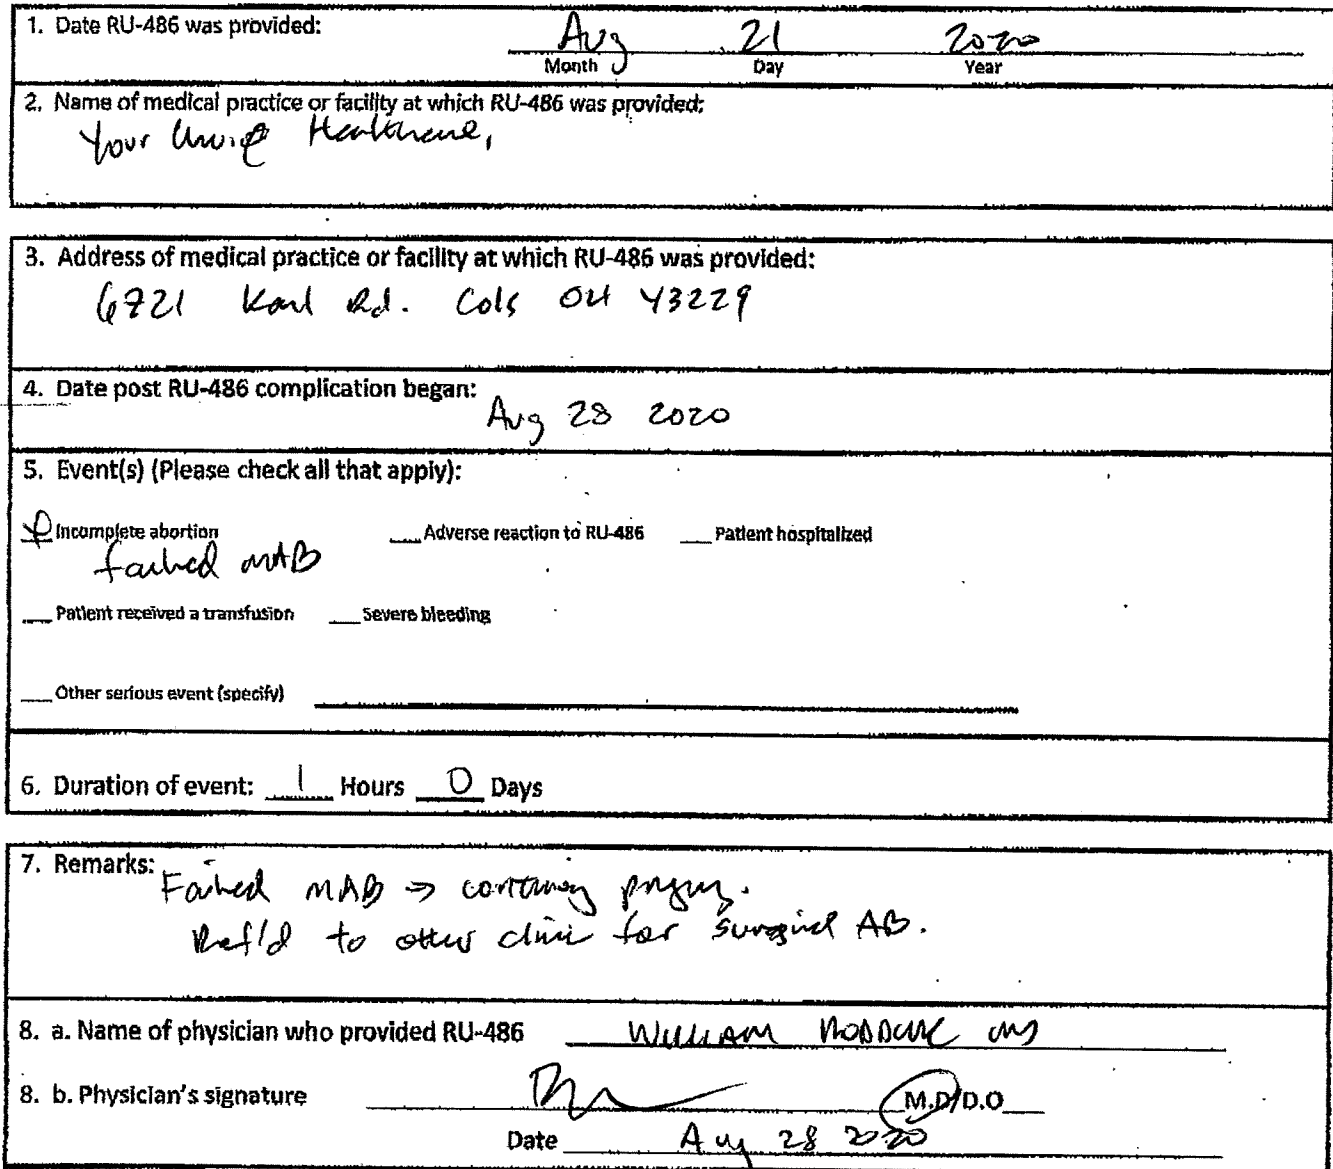 1. Date RU-486 was provided:
Aug 21 2020
Month Day Year
2. Name of medical practice or facility at which RU-486 was provided:
Your Choice Healthcare,
3. Address of medical practice or facility at which RU-486 was provided:
6721 Karl Rd. Cols OH 43229
4. Date post RU-486 complication began:
Aug 28 2020
5. Event(s) (Please check all that apply):
Incomplete abortion Adverse reaction to RU-486 Patient hospitalized
failed MAB
Patient received a transfusion Severe bleeding
Other serious event (specify)
6. Duration of event: 1 Hours 0 Days
7. Remarks:
Failed MAB → continuing
Ref'd to other clinic for surgical AB.
8. a. Name of physician who provided RU-486 William MD
8. b. Physician's signature M.D/D.O
Date Aug 28 2020